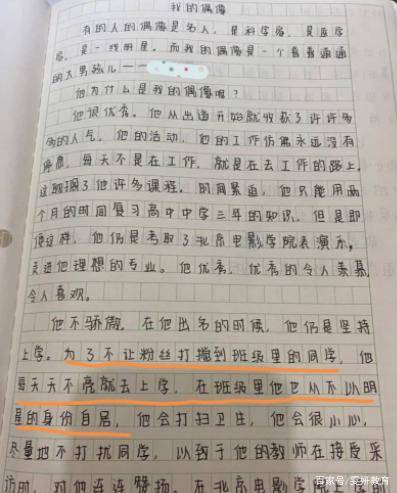 我的偶像
有的人的偶像是名人，是科学家，是医学
家，是一线明星。而我的偶像是一个普普通通
的大男孩儿——
他为什么是我的偶像呢？
他很优秀。他从出道开始就收获了许许多
多的人气。他的活动，他的工作仿佛永远没有
停息，每天不是在工作，就是在去工作的路上，
这耽搁了他许多课程。时间紧迫，他只能用两
个月的时间复习高中中学三年的知识，但是即
使这样，他仍是考取了北京电影学院表演系，
走进他理想的专业。他优秀，优秀的令人羡慕，
令人喜欢。
他不骄傲。在他出名的时候，他仍是坚持
上学。为了不让粉丝打搅到班级里的同学，他
每天天不亮就去上学，在班级里他也从不以明
星的身份自居，他会打扫卫生，他会很小心，
尽量地不打扰同学，以致于他的教师在接受采
访时，对他连连赞扬。在北京电影学院上学的
百家号/雯妍教育